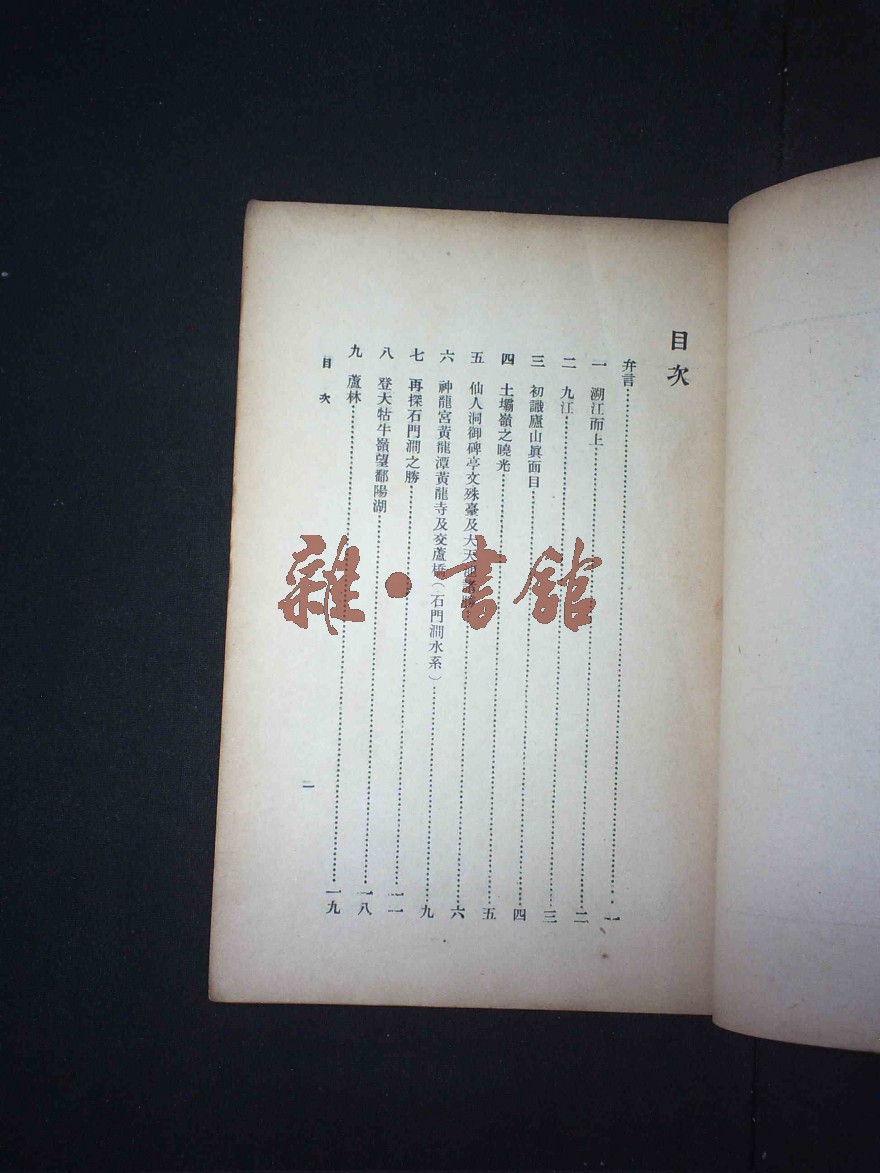 目次
弁言……一
一 溯江而上……二
二 九江……三
三 初識廬山眞面目……四
四 土壩嶺之曉光……五
五 仙人洞御碑亭文殊臺及大天池諸勝……六
六 神龍宮黃龍潭黃龍寺及交蘆橋（石門澗水系）……九
七 再探石門澗之勝……一一
八 登天牯牛嶺望鄱陽湖……一八
九 蘆林……一九
目次 二
雜·書館